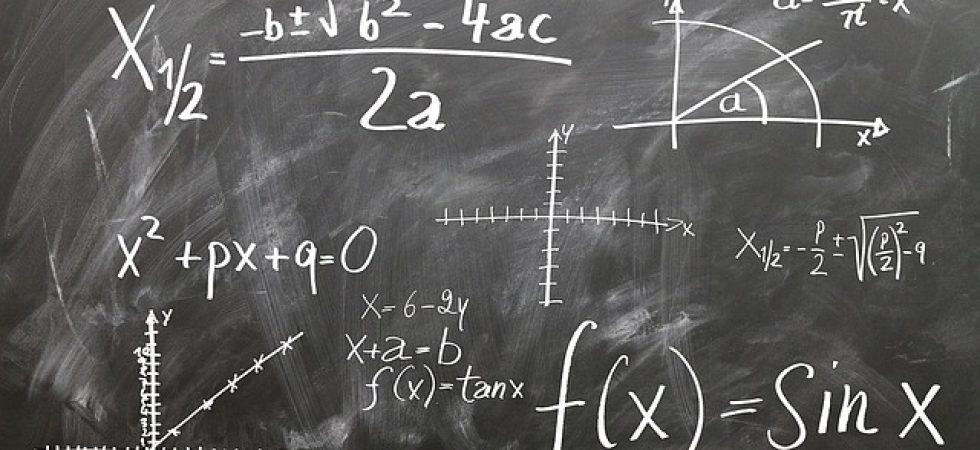 X1/2 = -b±√b² - 4ac / 2a
a
x
y
x
x² + px + q = 0
X1/2 = -p/2 ± √(p/2)² - q
x = 6 - 2y
x + a = b
f(x) = tan x
y
f(x) = Sin x